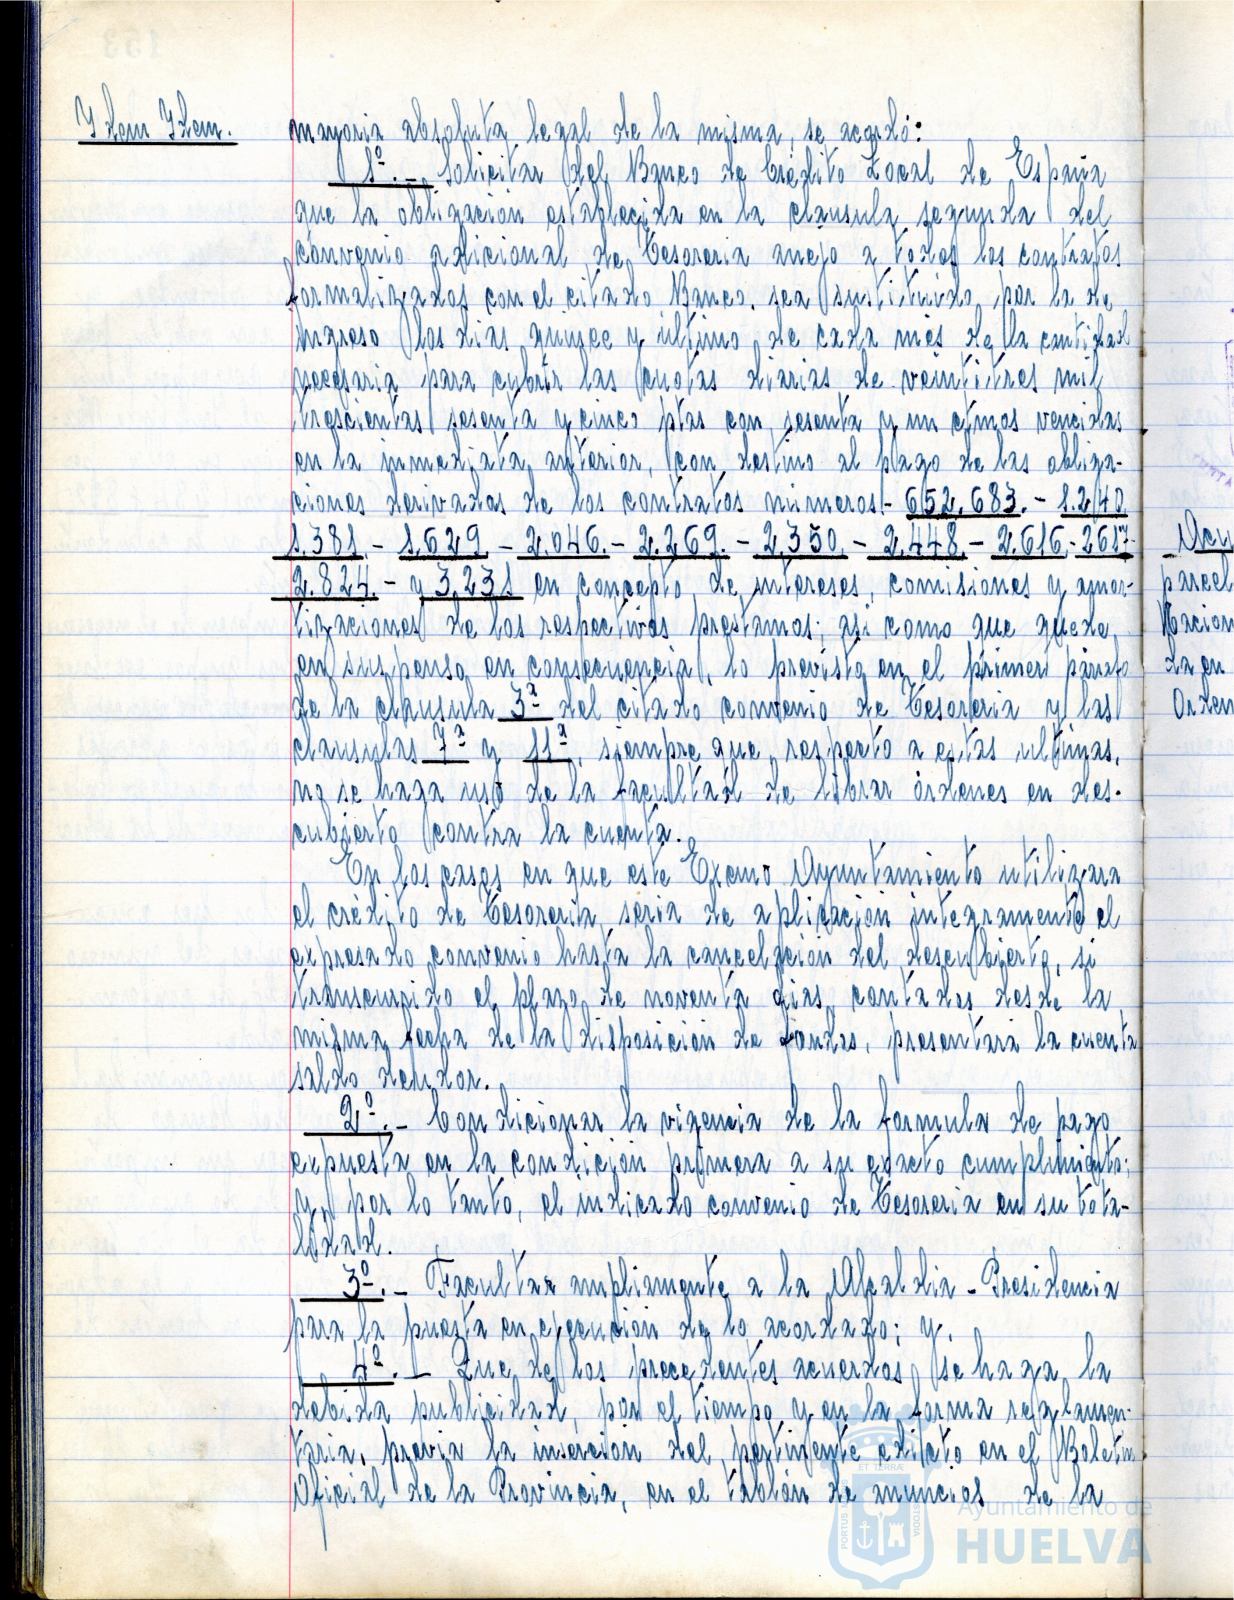 Ydem Ydem.
mayoria absoluta legal de la misma, se acordó:
1º.- Solicitar del Banco de Crédito Local de España
que la obligación establecida en la clausula segunda del
convenio adicional de Tesoreria anejo a todos los contratos
formalizados con el citado Banco, sea sustituida por la de
ingreso los dias quince y último de cada mes de la cantidad
necesaria para cubrir las cuotas diarias de veintitres mil
trescientas sesenta y cinco ptas con sesenta y un ctmos vencidas
en la inmediata anterior, con destino al pago de las obliga-
ciones derivadas de los contratos números:- 652, 683.- 1.240
1.381.- 1.629 - 2.046.- 2.269.- 2.350.- 2.448.- 2.616.-2617-
2.824.- y 3.231 en concepto de intereses, comisiones y amor-
tizaciones de los respectivos prestamos; asi como que quede,
en suspenso en consecuencia, lo previsto en el primer párrafo
de la clausula 3ª del citado convenio de Tesoreria y las
clausulas 7ª y 11ª, siempre que, respecto a estas ultimas,
no se haga uso de la facultad de librar órdenes en des-
cubierto contra la cuenta.
En los casos en que este Excmo Ayuntamiento utilizara
el crédito de Tesoreria seria de aplicación integramente el
expresado convenio hasta la cancelación del descubierto, si
transcurrido el plazo de noventa dias, contados desde la
misma fecha de la disposición de fondos, presentara la cuenta
saldo deudor.
2º.- Condicionar la vigencia de la formula de pago
expuesta en la condición primera a su exacto cumplimiento;
y, por lo tanto, el indicado convenio de Tesoreria en su tota-
lidad.
3º.- Facultar ampliamente a la Alcaldia - Presidencia
para la puesta en ejecución de lo acordado; y,
4º.- Que de los precedentes acuerdos, se haga la
debida publicidad, por el tiempo y en la forma reglamen-
taria, previa la inserción del pertinente edicto en el Boletin
Oficial de la Provincia, en el tablón de anuncios de la
parcel
da en
Orden
ET TERRÆ
Ayuntamiento de
HUELVA